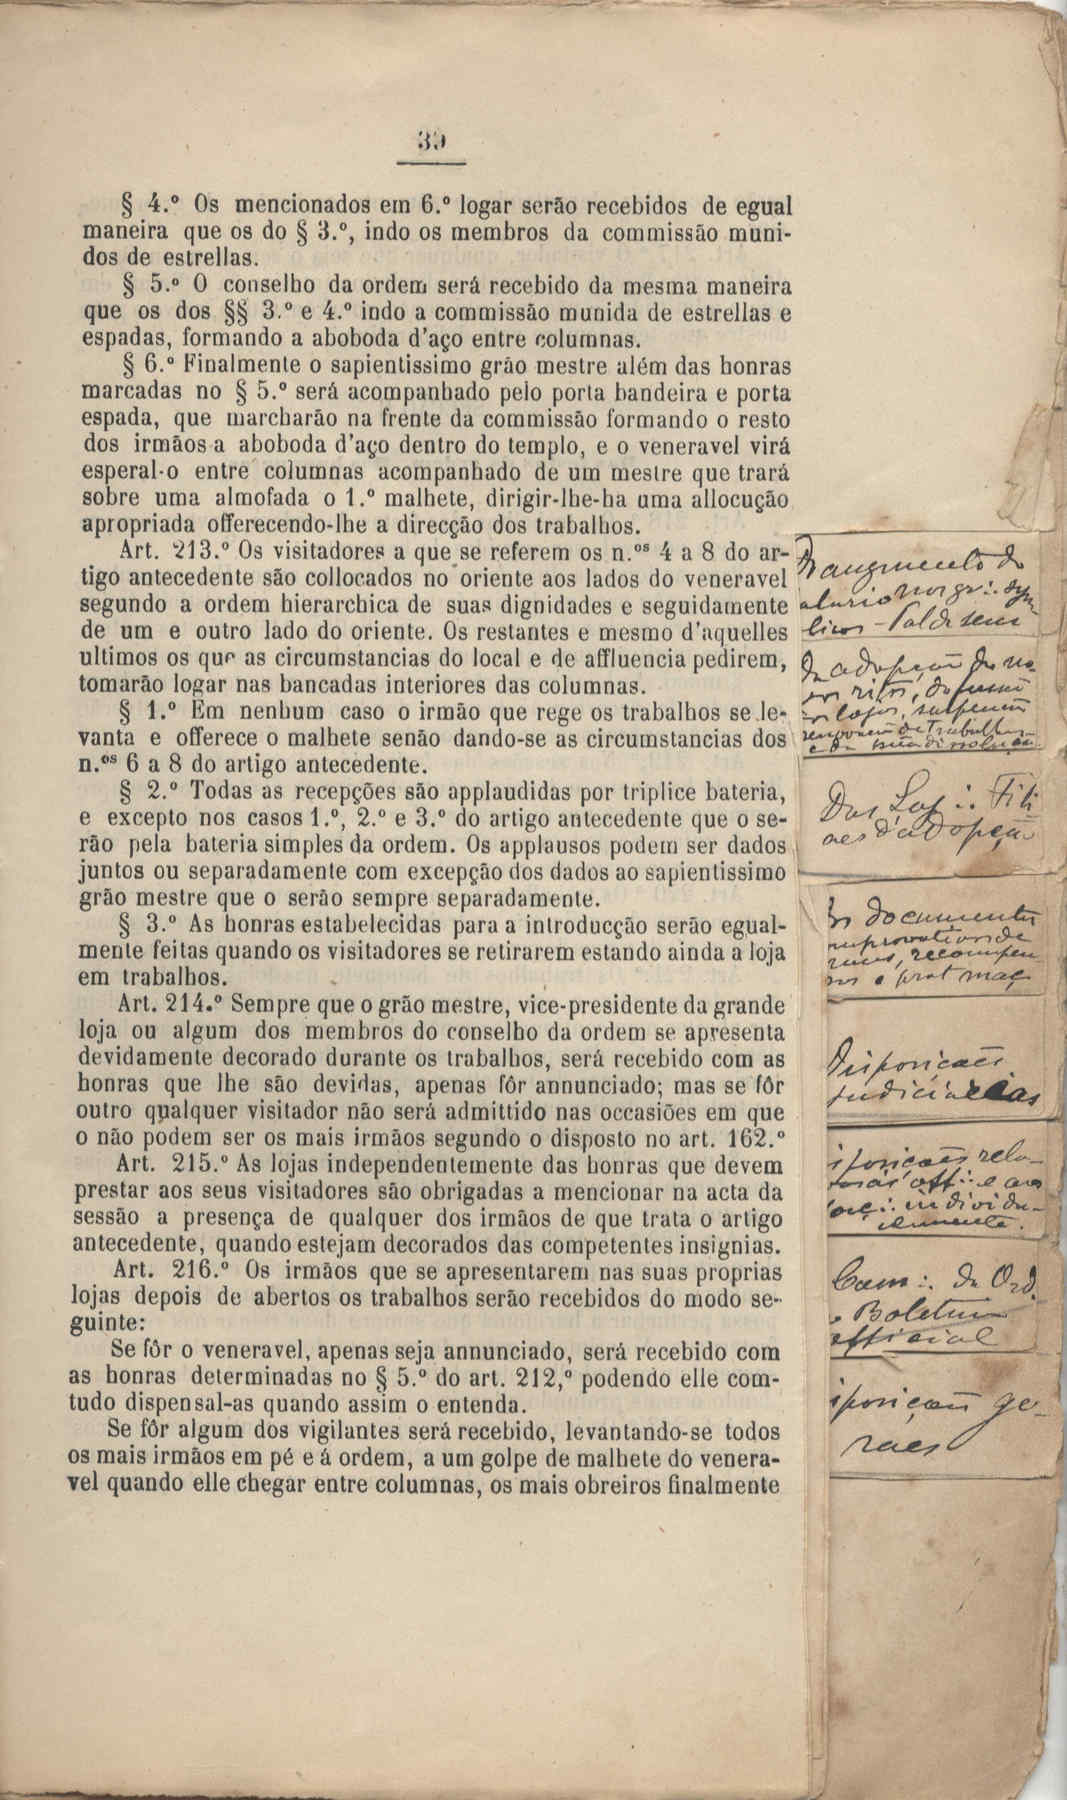 39
§ 4.º Os mencionados em 6.º logar serão recebidos de egual
maneira que os do § 3.º, indo os membros da commissão muni-
dos de estrellas.
§ 5.º O conselho da ordem será recebido da mesma maneira
que os dos §§ 3.º e 4.º indo a commissão munida de estrellas e
espadas, formando a aboboda d'aço entre columnas.
§ 6.º Finalmente o sapientissimo grão mestre além das honras
marcadas no § 5.º será acompanhado pelo porta bandeira e porta
espada, que marcharão na frente da commissão formando o resto
dos irmãos a aboboda d'aço dentro do templo, e o veneravel virá
esperal-o entre columnas acompanhado de um mestre que trará
sobre uma almofada o 1.º malhete, dirigir-lhe-ha uma allocução
apropriada offerecendo-lhe a direcção dos trabalhos.
Art. 213.º Os visitadores a que se referem os n.ºs 4 a 8 do ar-
tigo antecedente são collocados no oriente aos lados do veneravel
segundo a ordem hierarchica de suas dignidades e seguidamente
de um e outro lado do oriente. Os restantes e mesmo d'aquelles
ultimos os que as circumstancias do local e de affluencia pedirem,
tomarão logar nas bancadas interiores das columnas.
§ 1.º Em nenhum caso o irmão que rege os trabalhos se le-
vanta e offerece o malhete senão dando-se as circumstancias dos
n.ºs 6 a 8 do artigo antecedente.
§ 2.º Todas as recepções são applaudidas por triplice bateria,
e excepto nos casos 1.º, 2.º e 3.º do artigo antecedente que o se-
rão pela bateria simples da ordem. Os applausos podem ser dados
juntos ou separadamente com excepção dos dados ao sapientissimo
grão mestre que o serão sempre separadamente.
§ 3.º As honras estabelecidas para a introducção serão egual-
mente feitas quando os visitadores se retirarem estando ainda a loja
em trabalhos.
Art. 214.º Sempre que o grão mestre, vice-presidente da grande
loja ou algum dos membros do conselho da ordem se apresenta
devidamente decorado durante os trabalhos, será recebido com as
honras que lhe são devidas, apenas fôr annunciado; mas se fôr
outro qualquer visitador não será admittido nas occasiões em que
o não podem ser os mais irmãos segundo o disposto no art. 162.º
Art. 215.º As lojas independentemente das honras que devem
prestar aos seus visitadores são obrigadas a mencionar na acta da
sessão a presença de qualquer dos irmãos de que trata o artigo
antecedente, quando estejam decorados das competentes insignias.
Art. 216.º Os irmãos que se apresentarem nas suas proprias
lojas depois de abertos os trabalhos serão recebidos do modo se-
guinte:
Se fôr o veneravel, apenas seja annunciado, será recebido com
as honras determinadas no § 5.º do art. 212,º podendo elle com-
tudo dispensal-as quando assim o entenda.
Se fôr algum dos vigilantes será recebido, levantando-se todos
os mais irmãos em pé e á ordem, a um golpe de malhete do venera-
vel quando elle chegar entre columnas, os mais obreiros finalmente
augmento do
alario nos gr∴ sym-
licos
Da adopção de no-
vos ritos, da fusão
lojas, suspensão
de trabalhos
e da sua dissolução
Das Loj∴ Fili
aes d'adopção
documentos
mprovativos de
recompen
e prot maç
Disposições
judiciarias
isposições rela-
off∴ e aos
individu-
almente.
Cam∴ da Ord.
Boletim
official
isposições ge-
raes